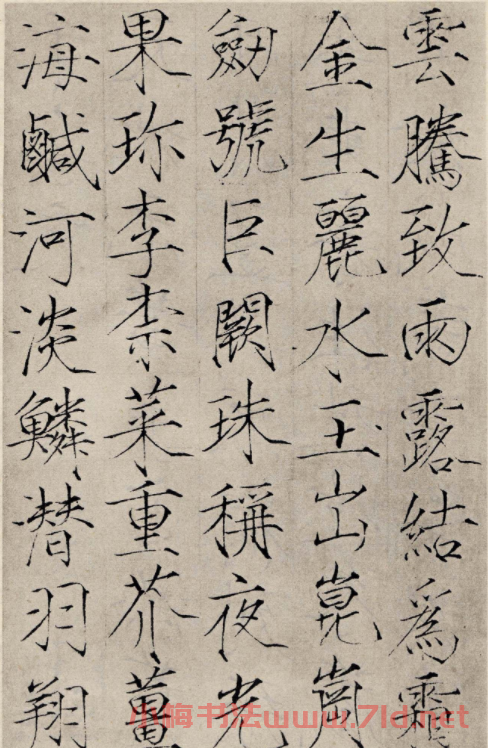 雲騰致雨露結爲霜
金生麗水玉出崑崗
劒號巨闕珠稱夜光
果珎李柰菜重芥薑
海鹹河淡鱗潛羽翔
小梅书法www.7ld.net